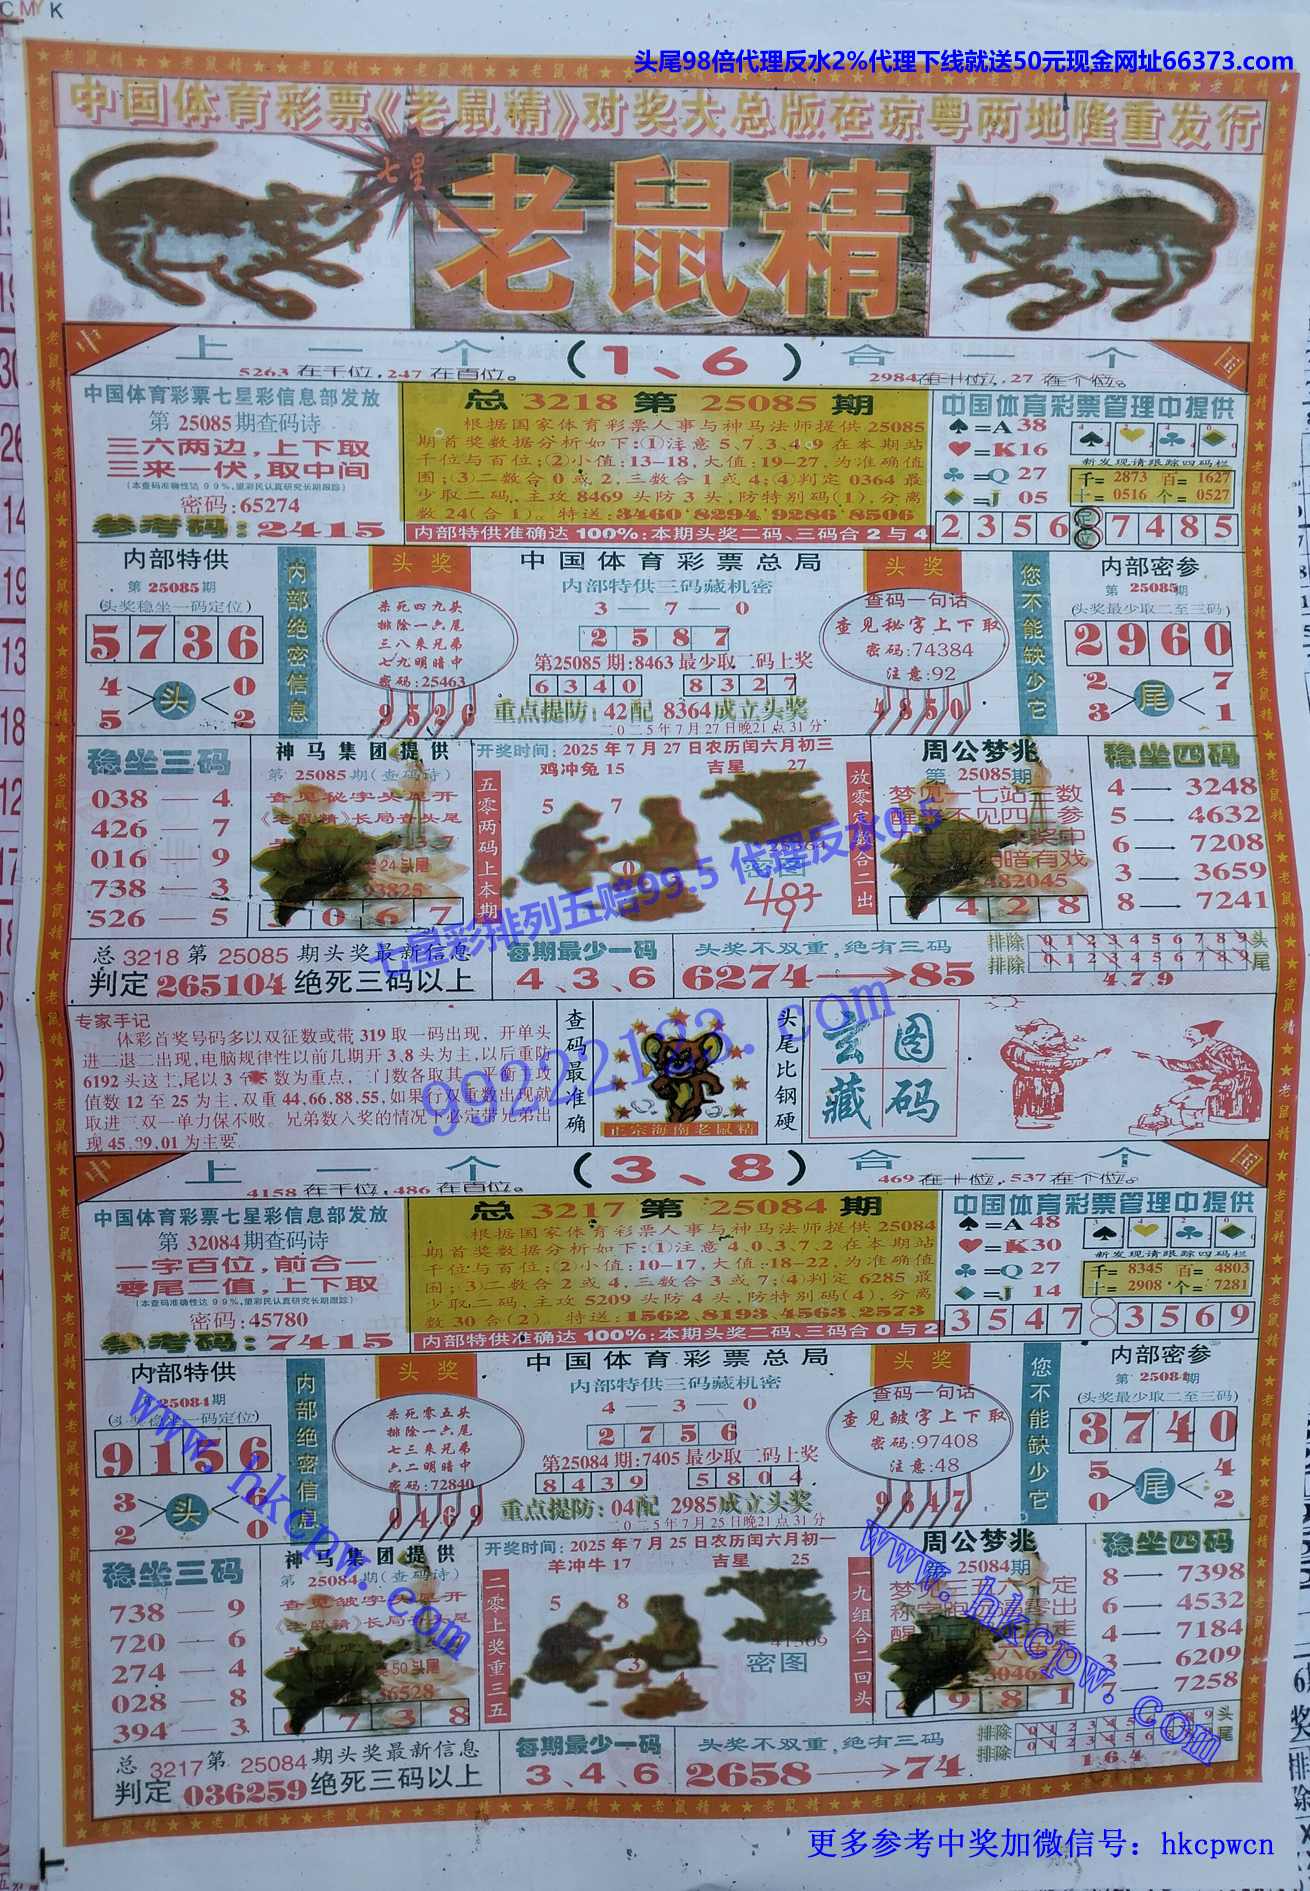 CMYK
头尾98倍代理反水2%代理下线就送50元现金网址66373.com
中国体育彩票《老鼠精》对奖大总版在琼粤两地隆重发行
七星
老鼠精
中 上一个(1、6)合一个 国
5263在千位,247在百位。
2984在十位,27在个位。
中国体育彩票七星彩信息部发放
第25085期查码诗
三六两边,上下取
三来一伏,取中间
(本查码准确性达99%,望彩民认真研究长期跟踪)
密码:65274
参考码:2415
总3218第25085期
根据国家体育彩票人事与神马法师提供25085
期首奖数据分析如下:(1)注意5、7、3、4、9在本期站
千位与百位;(2)小值:13-18,大值:19-27,为准确值
围;(3)二数合0或2,三数合1或4;(4)判定0364最
少取二码,主攻8469头防3头,防特别码(1),分离
数24(合1)。特送:3460 8294 9286 8506
内部特供准确达100%:本期头奖二码、三码合2与4
中国体育彩票管理中提供
♠=A 38
♥=K16
♣=Q 27
♦=J 05
新发现请跟踪四码栏
千=2873 百=1627
十=0516 个=0527
2356 7485
内部特供
第25085期
(头奖稳坐一码定位)
5736
4 0
头
5 2
内部绝密信息
头奖
杀死四九头
排除一六尾
三八来兄弟
七九明暗中
密码:25463
9526
中国体育彩票总局
内部特供三码藏机密
3—7—0
2587
第25085期:8463最少取二码上奖
6340 8327
重点提防:42配 8364成立头奖
二○二5年7月27日晚21点31分
头奖
查码一句话
查见秘字上下取
密码:74384
注意:92
4850
您不能缺少它
内部密参
第25085期
(头奖最少取二至三码)
2960
2 7
尾
3 1
稳坐三码
038—4
426—7
016—9
738—3
526—5
神马集团提供
第25085期(查码诗)
查见秘字头尾开
《老鼠精》长局查头尾
24头尾
93825
067
开奖时间:2025年7月27日农历闰六月初三
鸡冲兔15 吉星 27
五零两码上本期
5 7
0
密图
483
放零定数合二出
周公梦兆
第25085期
梦见一七站三数
482045
428
稳坐四码
4→3248
5→4632
6→7208
3→3659
8→7241
七星彩排列五赔99.5 代理反水0.5
总3218第25085期头奖最新信息
判定265104绝死三码以上
每期最少一码
4、3、6
头奖不双重,绝有三码
6274→85
排除0123456789头
排除0123456789尾
4.7.9
专家手记
体彩首奖号码多以双征数或带319取一码出现,开单头
进二退二出现,电脑规律性以前几期开3、8头为主,以后重防
6192头这十,尾以3至5数为重点,三门数各取其一平衡主攻
值数12至25为主,双重44,66,88,55,如果行双重数出现就
取进三双一单力保不败。兄弟数入奖的情况下必定带兄弟出
现45、89、01为主要
查码最准确
正宗海南老鼠精
头尾比钢硬
玄图
藏码
99222123.com
中 上一个(3、8)合一个 国
4158在千位,486在百位。
469在十位,537在个位。
中国体育彩票七星彩信息部发放
第32084期查码诗
一字百位,前合一
零尾二值,上下取
(本查码准确性达99%,望彩民认真研究长期跟踪)
密码:45780
参考码:7415
总3217第25084期
根据国家体育彩票人事与神马法师提供25084
期首奖数据分析如下:(1)注意4、0、3、7、2在本期站
千位与百位;(2)小值:10-17,大值:18-22,为准确值
围;(3)二数合2或4,三数合3或7;(4)判定6285最
少取二码,主攻5209头防4头,防特别码(4),分离
数30合(2)。特送:1562、8193、4563、2573
内部特供准确达100%:本期头奖二码、三码合0与2
中国体育彩票管理中提供
♠=A 48
♥=K30
♣=Q 27
♦=J 14
新发现请跟踪四码栏
千=8345 百=4803
十=2908 个=7281
3547 3569
内部特供
第25084期
(头奖稳坐一码定位)
9156
3 6
头
2 0
内部绝密信息
头奖
杀死零五头
排除一六尾
七三来兄弟
六二明暗中
密码:72840
0469
中国体育彩票总局
内部特供三码藏机密
4—3—0
2756
第25084期:7405最少取二码上奖
8439 5804
重点提防:04配 2985成立头奖
二○二5年7月25日晚21点31分
头奖
查码一句话
查见皱字上下取
密码:97408
注意:48
9647
您不能缺少它
内部密参
第25084期
(头奖最少取二至三码)
3740
5 4
尾
0 2
www.hkcpw.com
稳坐三码
738—9
720—6
274—4
028—8
394—3
神马集团提供
第25084期(查码诗)
查见皱字头尾开
50头尾
86528
738
开奖时间:2025年7月25日农历闰六月初一
羊冲牛17 吉星 25
二零上奖重三五
5 8
3 4
41309
密图
一九组合二回头
周公梦兆
第25084期
30462
4981
www.hkcpw.com
稳坐四码
8→7398
6→4532
4→7184
3→6209
7→7258
总3217第25084期头奖最新信息
判定036259绝死三码以上
每期最少一码
3、4、6
头奖不双重,绝有三码
2658→74
排除 头
排除 尾
1.6.4
更多参考中奖加微信号:hkcpwcn